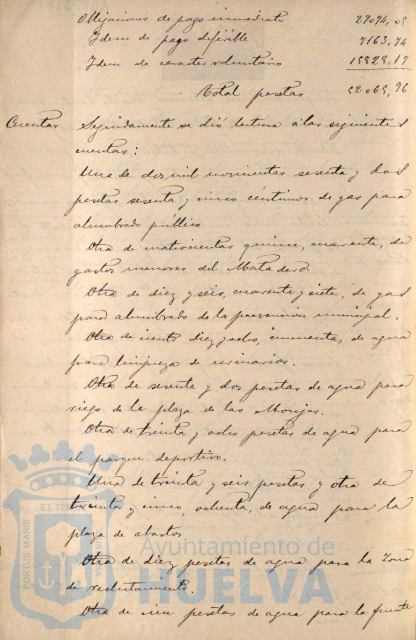 Obligaciones de pago inmediato 29074,05
Idem de pago diferible 7163,74
Idem de caracter voluntario 15828,17
Total pesetas 52065,96
Cuentas Seguidamente se dió lectura á las siguientes
cuentas:
Una de dos mil novecientas sesenta y dos
pesetas sesenta y cinco céntimos de gas para
alumbrado público
Otra de cuatrocientas quince, cuarenta, de
gastos menores del Matadero.
Otra de diez y seis, cuarenta y siete, de gas
para alumbrado de la prevencion municipal.
Otra de ciento diez y ocho, cincuenta, de agua
para limpieza de urinarios.
Otra de sesenta y dos pesetas de agua para
riego de la plaza de las Monjas.
Otra de treinta y ocho pesetas de agua para
el parque deportivo.
Una de treinta y seis pesetas y otra de
treinta y cinco, ochenta, de agua para la
plaza de abastos
Otra de diez pesetas de agua para la Zona
de reclutamiento.
Otra de cien pesetas de agua para la fuente
PORTUS MARIS ET TERRAE
Ayuntamiento de
HUELVA